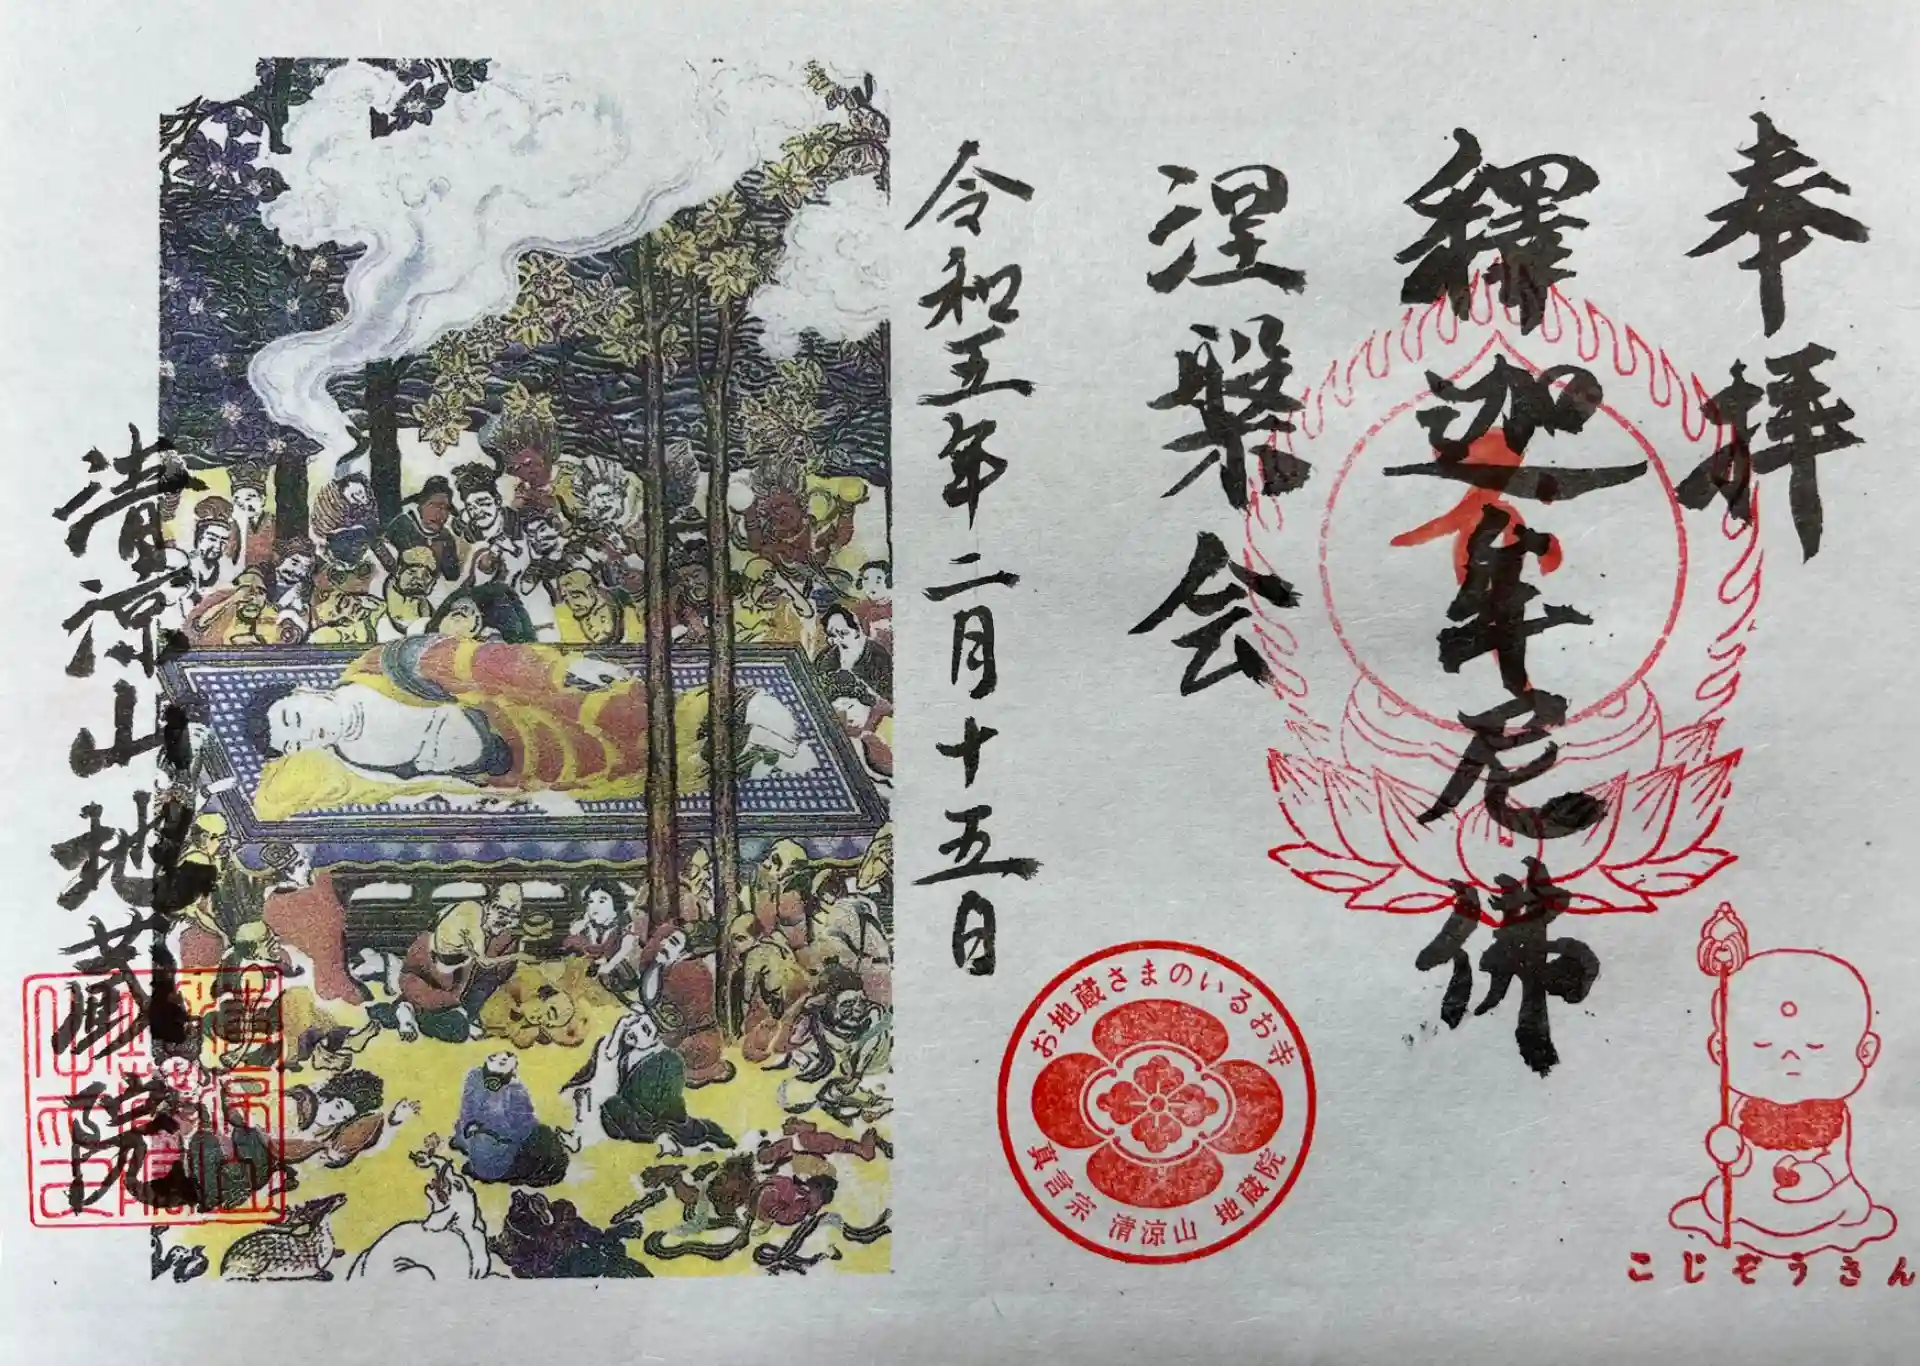 奉拝
釋迦牟尼佛
涅槃会
令和五年二月十五日
清涼山地蔵院
お地蔵さまのいるお寺
真言宗 清涼山 地蔵院
こじぞうさん